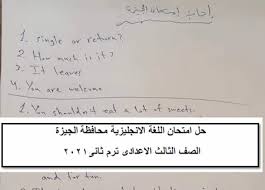 أجابة امتحان الجيزة
1. Single or return?
2. How much is it?
3. It leaves
4. You are welcome
1. You shouldn't eat a lot of sweets.
حل امتحان اللغة الانجليزية محافظة الجيزة
الصف الثالث الاعدادى ترم ثانى ٢٠٢١
and for fun.